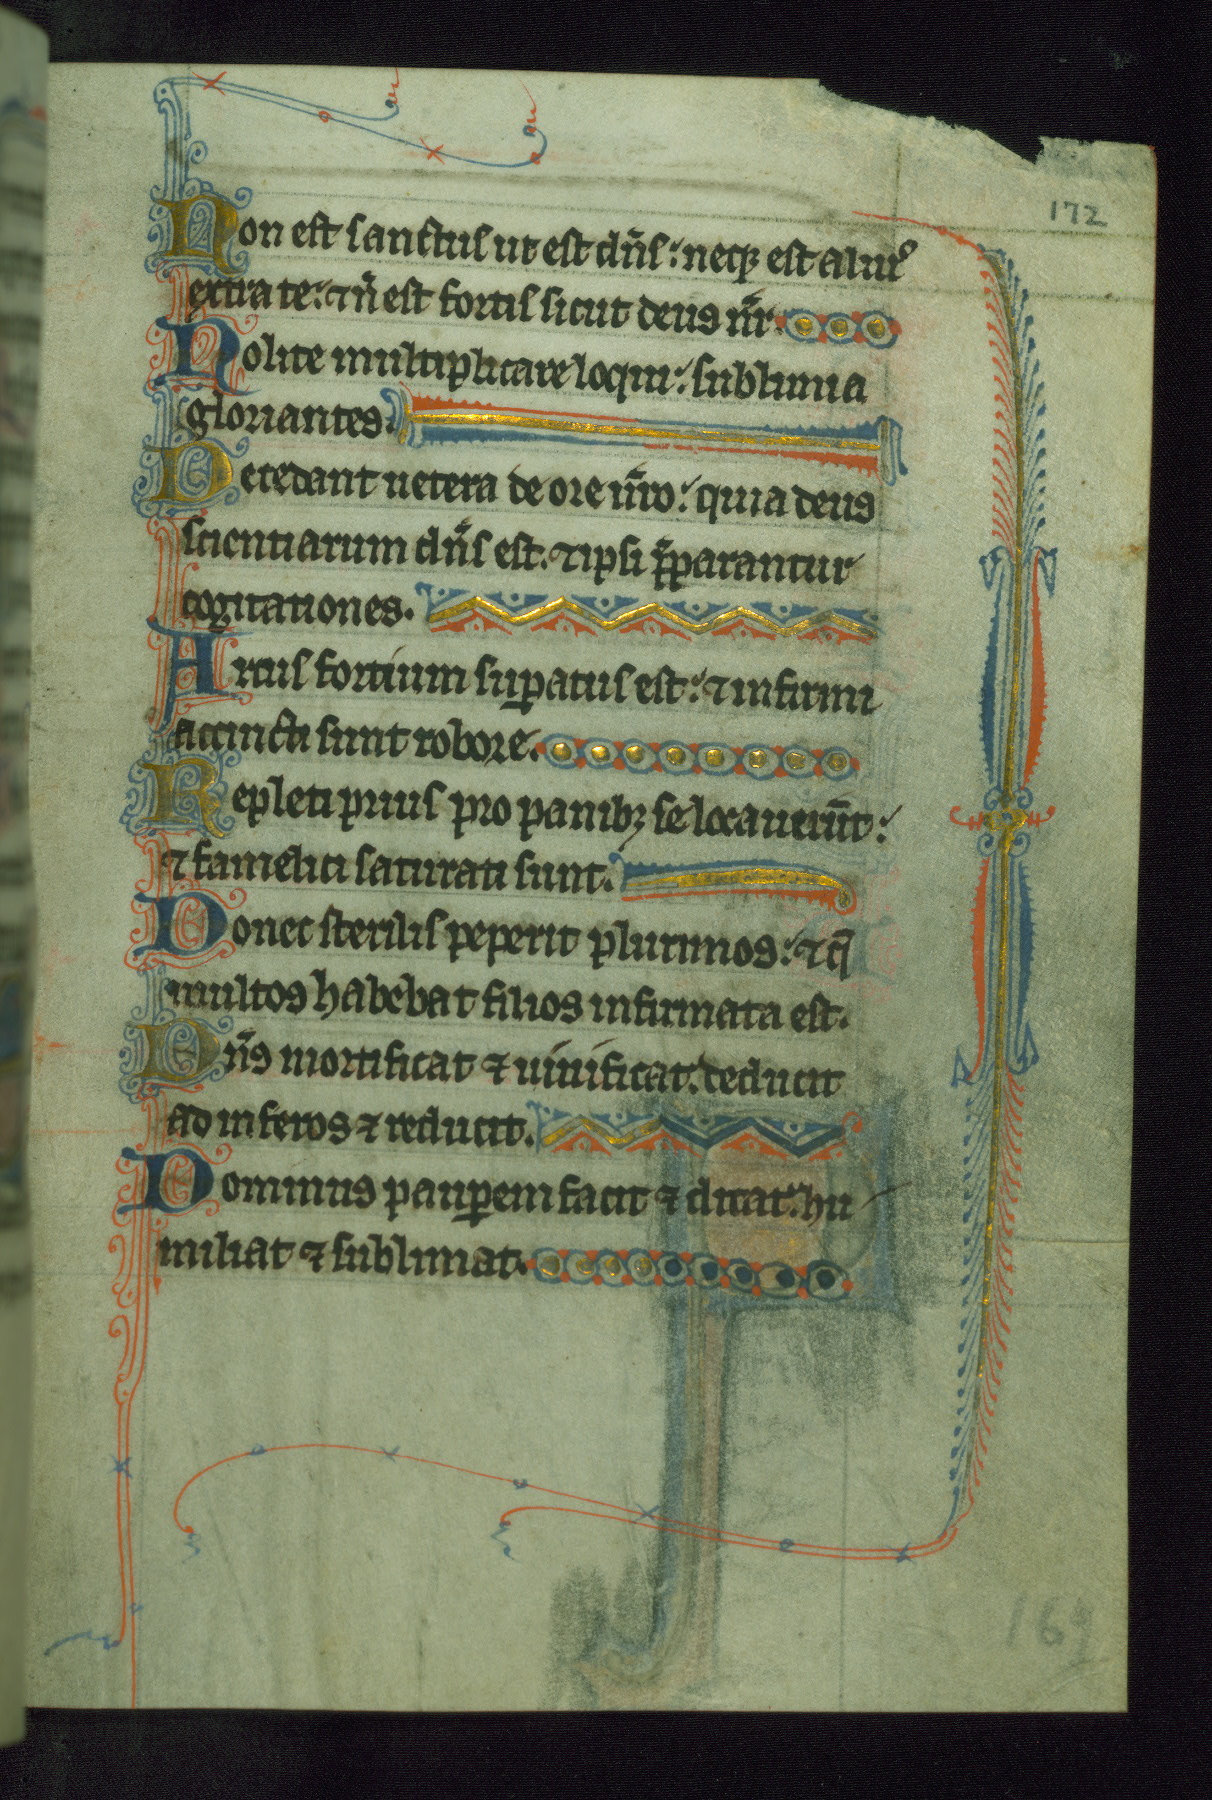 172
Non est sanctus ut est dn̄s: neq; est alius
extra te: ⁊ n̄ est fortis sicut deus nr̄.
Nolite multiplicare loqui: sublimia
gloriantes.
Recedant uetera de ore ur̄o: quia deus
scientiarum dn̄s est. ⁊ ipsi p̄parantur
cogitationes.
Arcus fortium suꝑatus est: ⁊ infirmi
accincti sunt robore.
Repleti prius pro panibꝫ se locauerūt:
⁊ famelici saturati sunt.
Donec sterilis peperit plurimos: ⁊ q̄
multos habebat filios infirmata est.
Dn̄s mortificat ⁊ uiuificat. deducit
ad inferos ⁊ reducit.
Dominus pauꝑem facit ⁊ ditat: hu
miliat ⁊ sublimat.
169